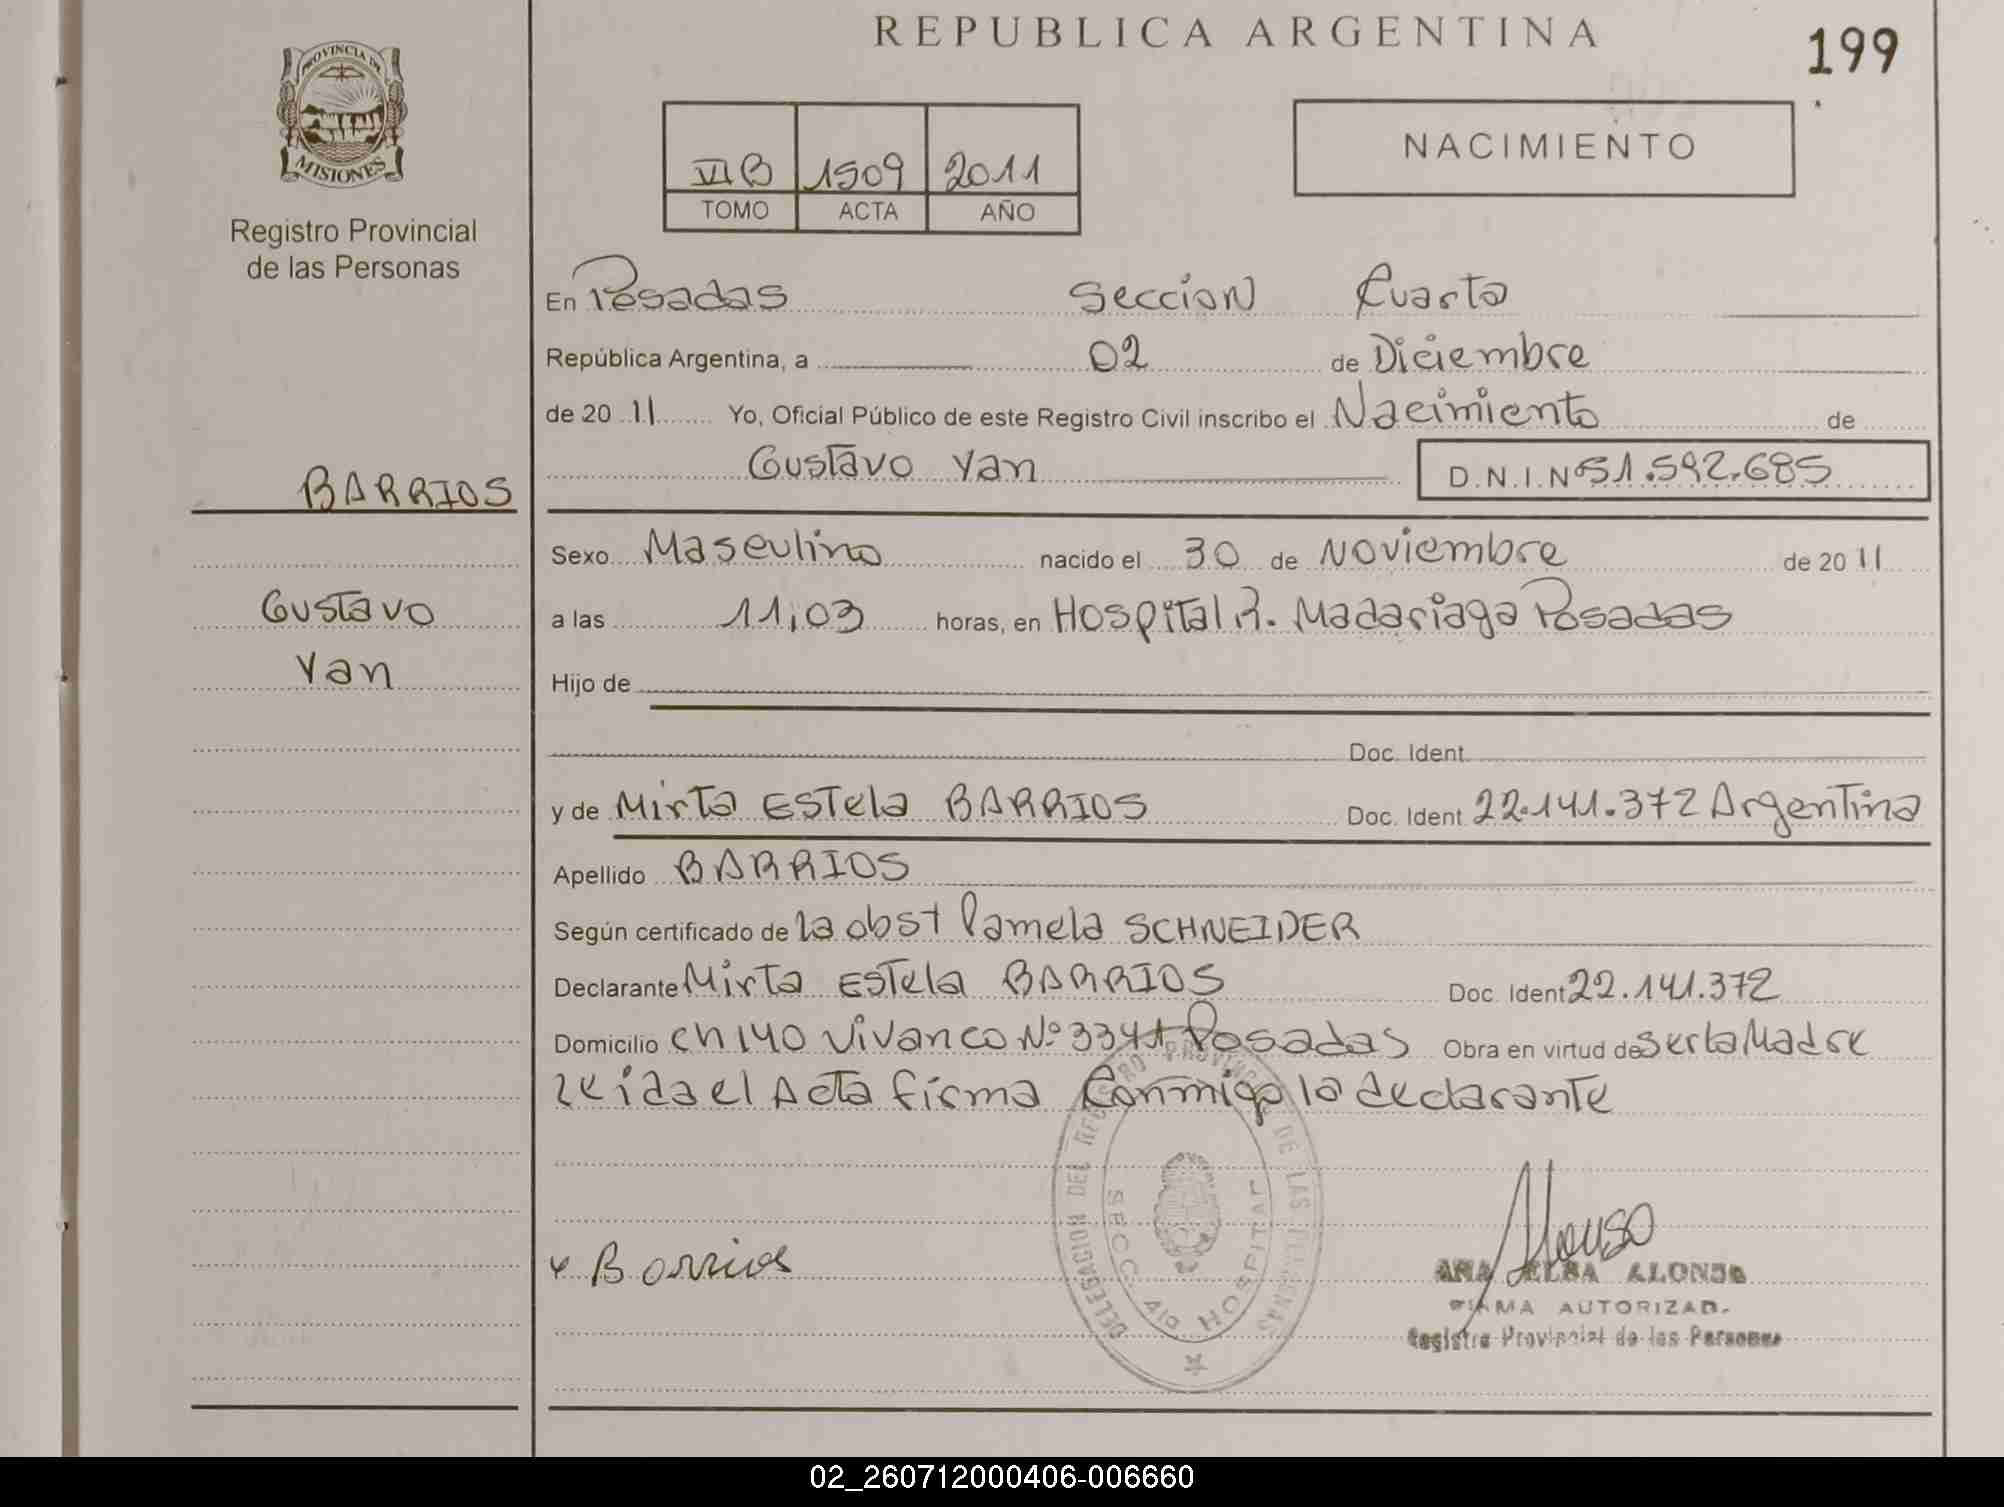 REPUBLICA ARGENTINA
199
PROVINCIA DE
MISIONES
Registro Provincial
de las Personas
VI B 1509 2011
TOMO ACTA AÑO
NACIMIENTO
En Posadas Seccion Cuarta
República Argentina, a 02 de Diciembre
de 20 11 Yo, Oficial Público de este Registro Civil inscribo el Nacimiento de
Gustavo Yan D.N.I.Nº 51.592.685
BARRIOS
Gustavo
Yan
Sexo Masculino nacido el 30 de Noviembre de 20 11
a las 11,03 horas, en Hospital R. Madariaga Posadas
Hijo de
Doc. Ident.
y de Mirta Estela BARRIOS Doc. Ident 22.141.372 Argentina
Apellido BARRIOS
Según certificado de la obst Pamela SCHNEIDER
Declarante Mirta Estela BARRIOS Doc. Ident 22.141.372
Domicilio Ch 140 Vivanco Nº 3341 Posadas Obra en virtud de ser la Madre
leida el Acta firma Conmigo la declarante
DELEGACION DEL REGISTRO PROVINCIAL DE LAS PERSONAS
SECC. 4ta HOSPITAL
Barrios
Alonso
ANA ELBA ALONSO
FIRMA AUTORIZAD.
Registro Provincial de las Personas
02_260712000406-006660